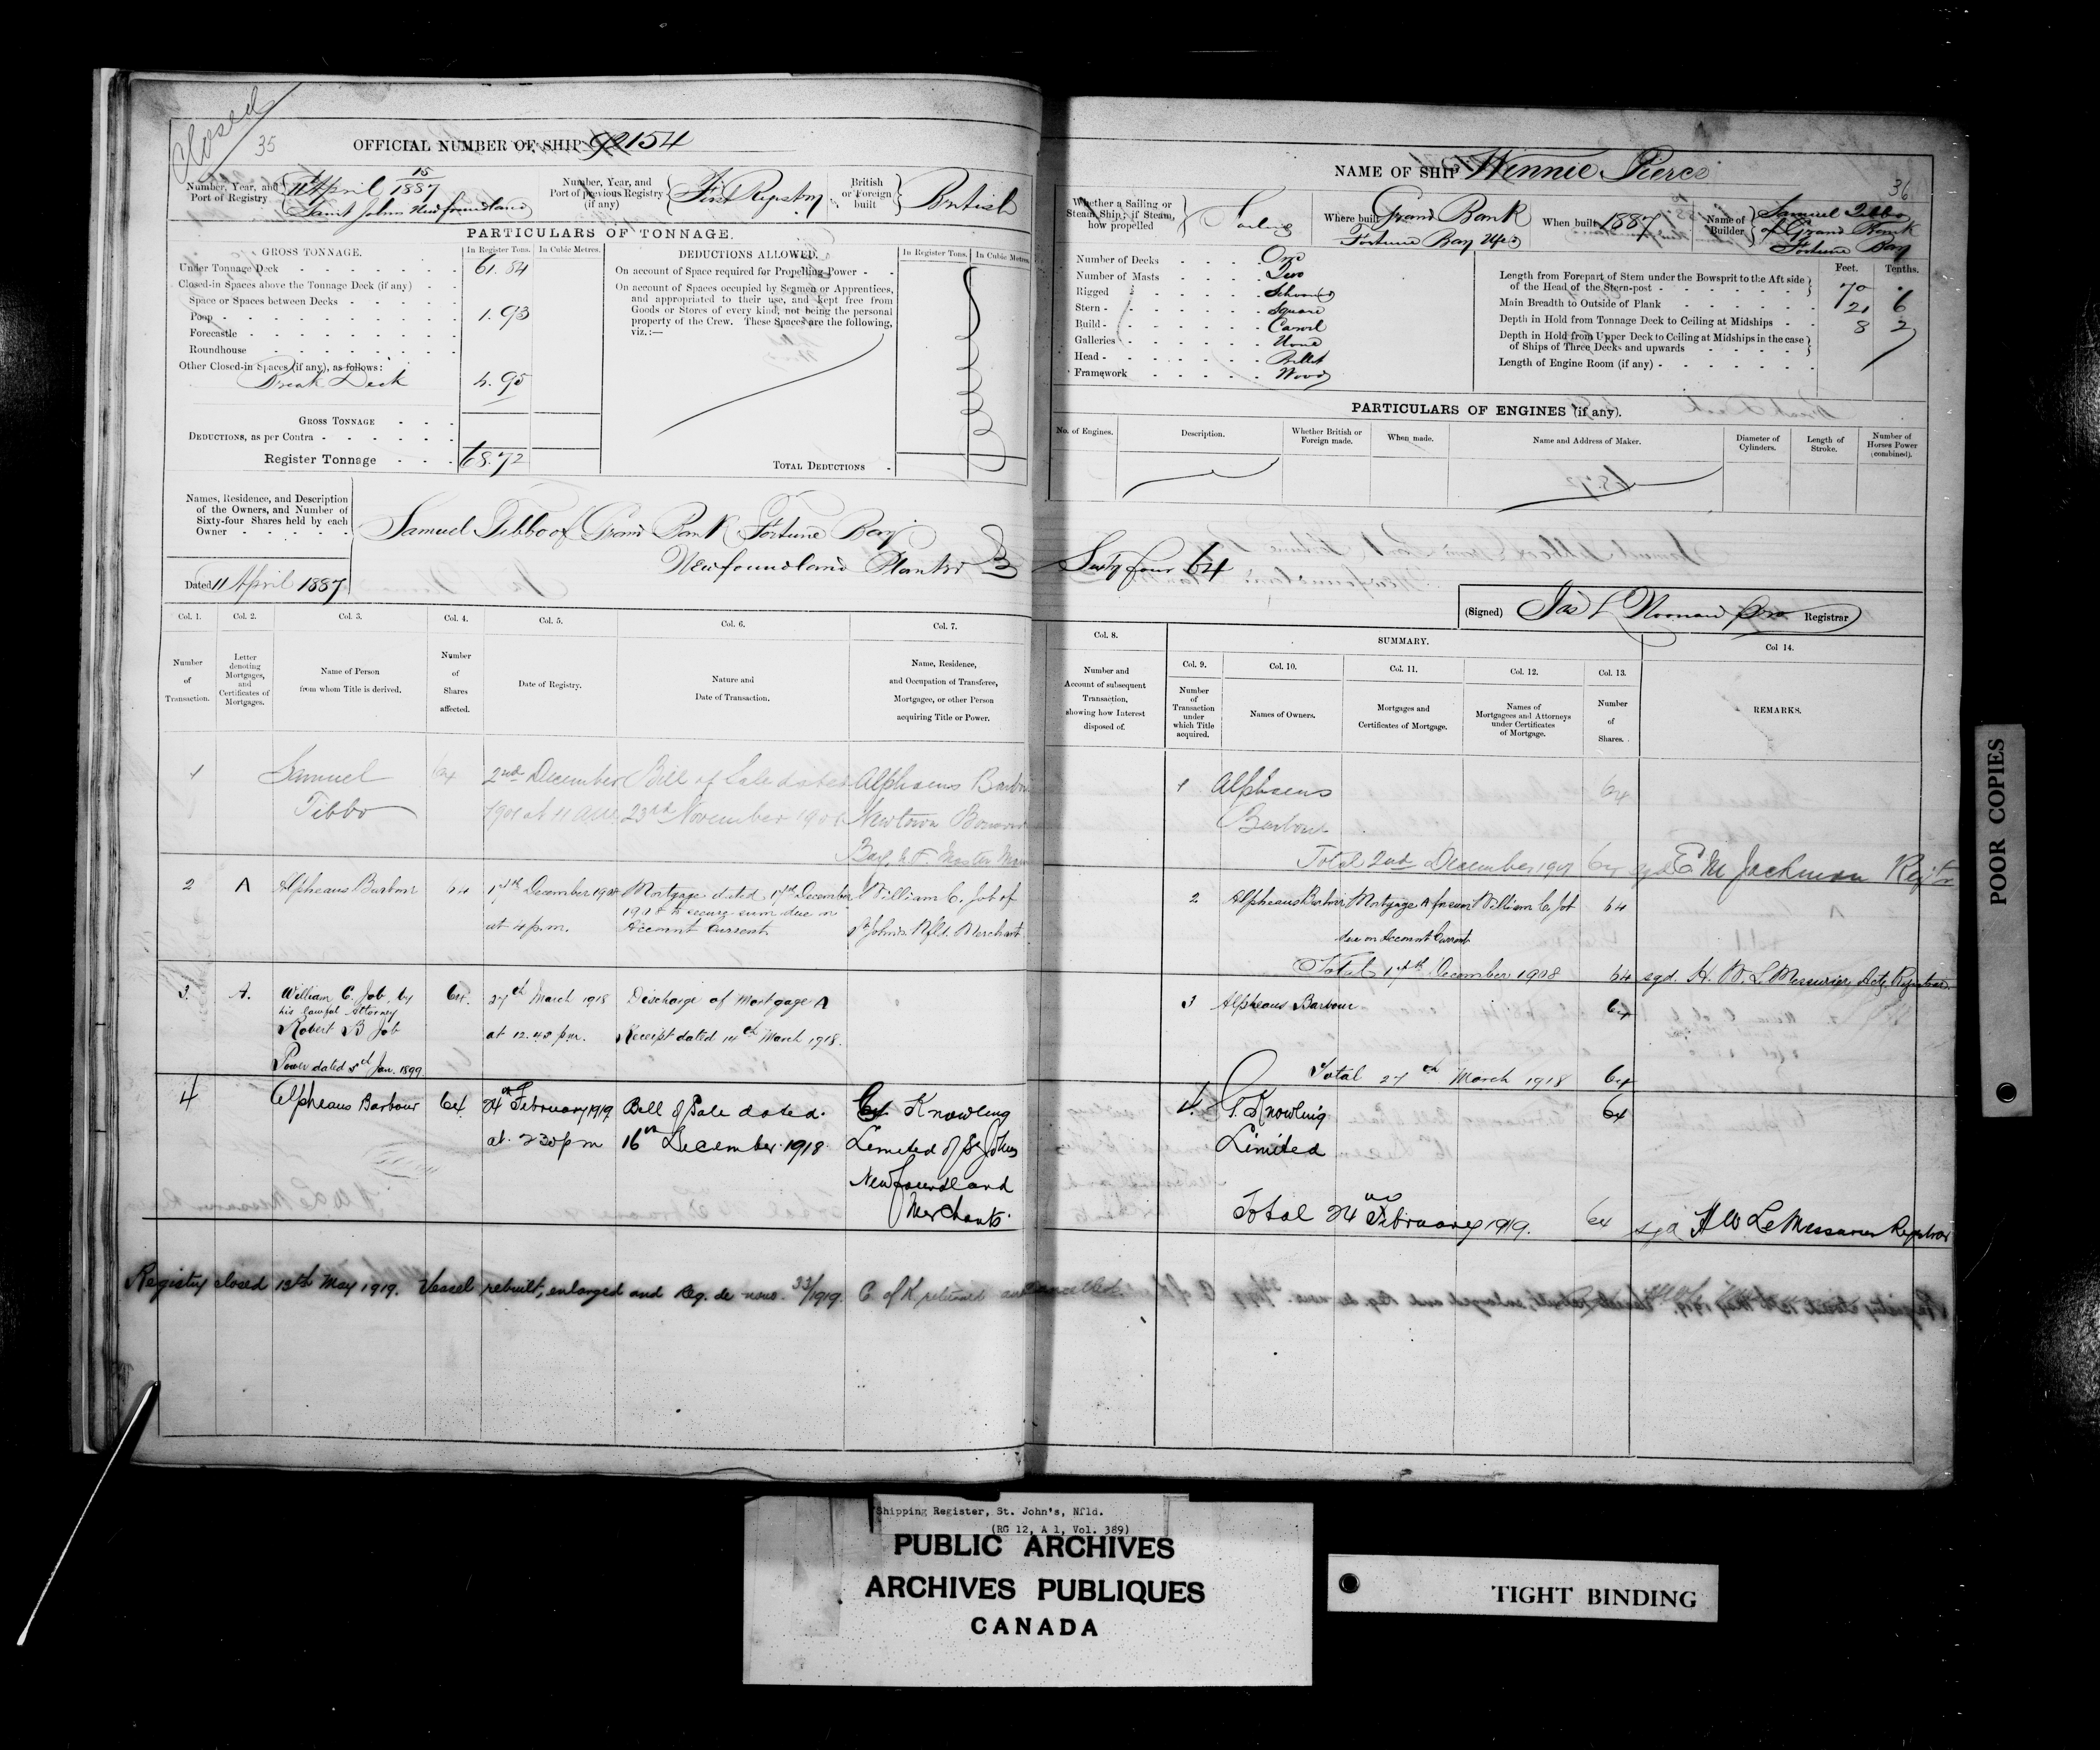 Closed
35
OFFICIAL NUMBER OF SHIP 92154
Number, Year, and Port of Registry
15
11 April 1887
Saint Johns Newfoundland
Number, Year, and Port of previous Registry (if any)
First Registry
British or Foreign built
British
PARTICULARS OF TONNAGE.
GROSS TONNAGE.
In Register Tons.
In Cubic Metres.
Under Tonnage Deck 61.84
Closed-in Spaces above the Tonnage Deck (if any)
Space or Spaces between Decks
Poop 1.93
Forecastle
Roundhouse
Other Closed-in Spaces (if any), as follows:
Break Deck 4.95
GROSS TONNAGE
DEDUCTIONS, as per Contra
Register Tonnage 68.72
DEDUCTIONS ALLOWED.
In Register Tons.
In Cubic Metres.
On account of Space required for Propelling Power
On account of Spaces occupied by Seamen or Apprentices,
and appropriated to their use, and kept free from
Goods or Stores of every kind, not being the personal
property of the Crew. These Spaces are the following,
viz.:—
TOTAL DEDUCTIONS
Names, Residence, and Description
of the Owners, and Number of
Sixty-four Shares held by each
Owner
Samuel Tibbo of Grand Bank Fortune Bay
Newfoundland Planter
Dated 11 April 1887
Col. 1.
Number of Transaction.
Col. 2.
Letter denoting Mortgages, and Certificates of Mortgages.
Col. 3.
Name of Person from whom Title is derived.
Col. 4.
Number of Shares affected.
Col. 5.
Date of Registry.
Col. 6.
Nature and Date of Transaction.
Col. 7.
Name, Residence, and Occupation of Transferee, Mortgagee, or other Person acquiring Title or Power.
1
Samuel Tibbo
64
2nd December
at 11 a.m.
Bill of Sale dated
23rd November
Alphaeus Barbour
Newtown Bonavista
Bay, N.F. Master
2
A
Alpheaus Barbour
64
17th December
at 4 p.m.
Mortgage dated 17th December
to secure sum due on
Account Current
William C. Job of
St Johns Nfld. Merchant
3
A.
William C. Job, by
his lawful Attorney
Robert B Job
Power dated 5th Jan. 1899
64.
27th March 1918
at 12.40 p.m.
Discharge of Mortgage A
Receipt dated 14th March 1918.
4
Alpheaus Barbour
64
24th February 1919
at 2 30 pm
Bill of Sale dated
16th December 1918
G Knowling
Limited of St Johns
Newfoundland
Merchants
Registry closed 13th May 1919. Vessel rebuilt, enlarged and Reg. de novo. 33/1919. C of R returned and cancelled.
NAME OF SHIP Winnie Pierce
36
Whether a Sailing or Steam Ship; if Steam, how propelled
Sailing
Where built
Grand Bank
Fortune Bay Nfld
When built 1887
Name of Builder
Samuel Tibbo
of Grand Bank
Fortune Bay
Number of Decks One
Number of Masts Two
Rigged Schooner
Stern Square
Build Carvel
Galleries None
Head Billet
Framework Wood
Feet. Tenths.
Length from Forepart of Stem under the Bowsprit to the Aft side
of the Head of the Stern-post 70
Main Breadth to Outside of Plank 21 6
Depth in Hold from Tonnage Deck to Ceiling at Midships 8 2
Depth in Hold from Upper Deck to Ceiling at Midships in the case
of Ships of Three Decks and upwards
Length of Engine Room (if any)
PARTICULARS OF ENGINES (if any).
No. of Engines.
Description.
Whether British or Foreign made.
When made.
Name and Address of Maker.
Diameter of Cylinders.
Length of Stroke.
Number of Horses Power (combined).
Sixty four 64
(Signed) Jas L Noonan Registrar
Col. 8.
Number and Account of subsequent Transaction, showing how Interest disposed of.
SUMMARY.
Col. 9.
Number of Transaction under which Title acquired.
Col. 10.
Names of Owners.
Col. 11.
Mortgages and Certificates of Mortgage.
Col. 12.
Names of Mortgagees and Attorneys under Certificates of Mortgage.
Col. 13.
Number of Shares.
Col 14.
REMARKS.
1
Alphaeus
Barbour
64
Total 2nd December 64 sgd E M Jackman
2
Alpheaus Barbour
Mortgage A for sum
due on Account Current
William C. Job
64
Total 17th December 1908 64 sgd. H. W. LeMessurier, Actg. Registrar.
3
Alpheaus Barbour
64
Total 27th March 1918 64
4.
G. Knowling
Limited
64
Total 24 February 1919. 64 sgd H W LeMessurier Registrar
POOR COPIES
Shipping Register, St. John's, Nfld.
(RG 12, A 1, Vol. 389)
PUBLIC ARCHIVES
ARCHIVES PUBLIQUES
CANADA
TIGHT BINDING